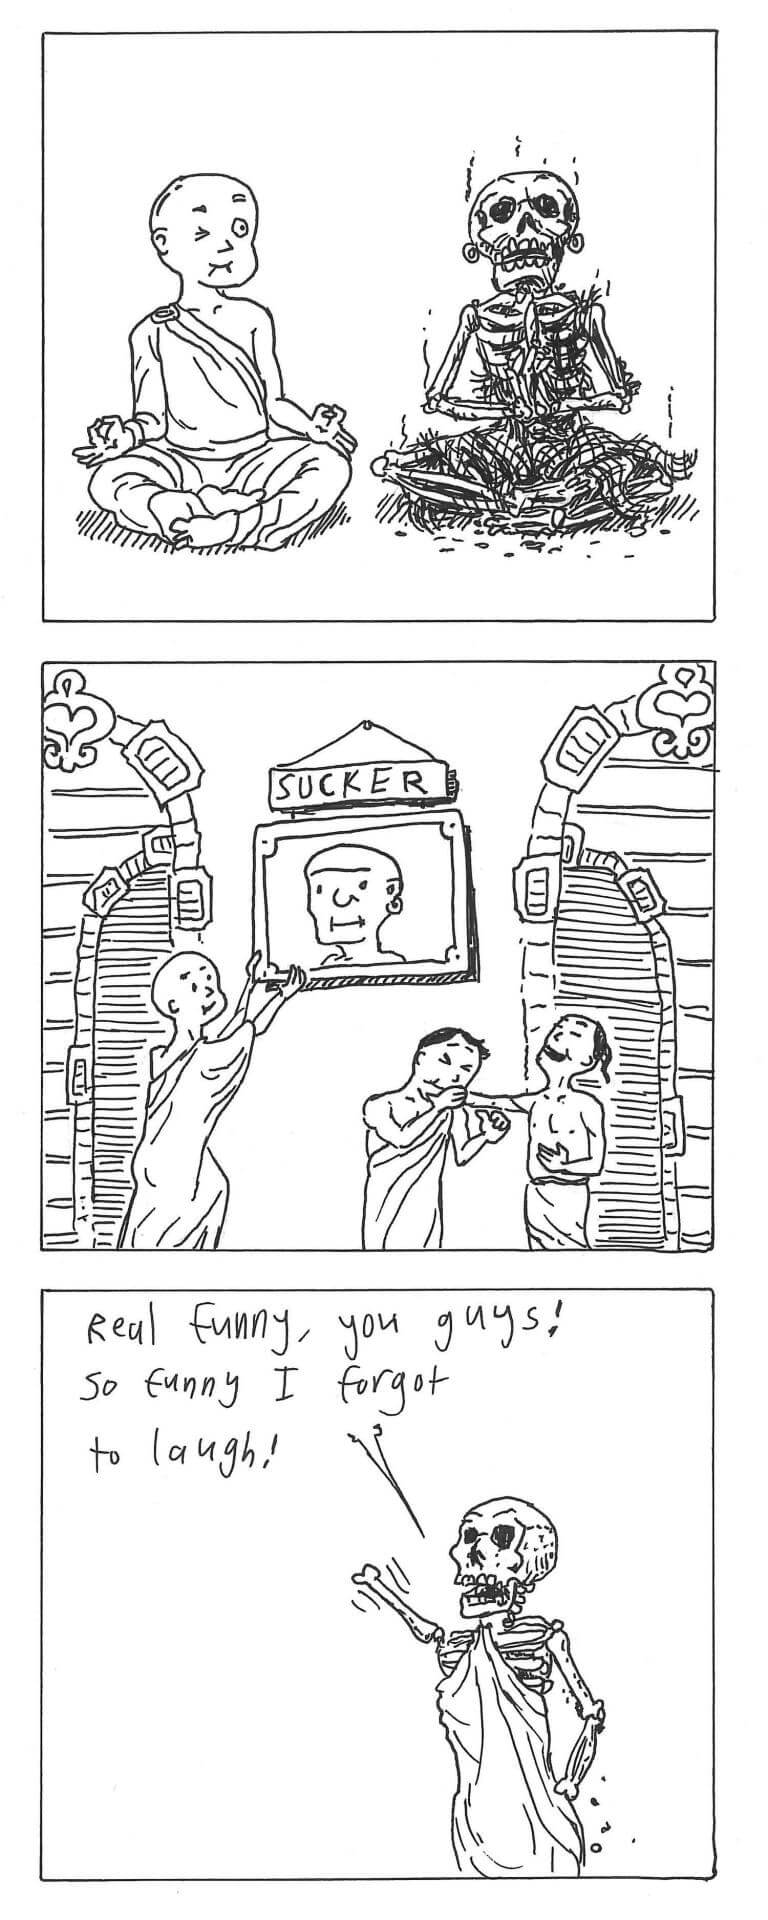 SUCKER
Real funny, you guys!
So funny I forgot
to laugh!